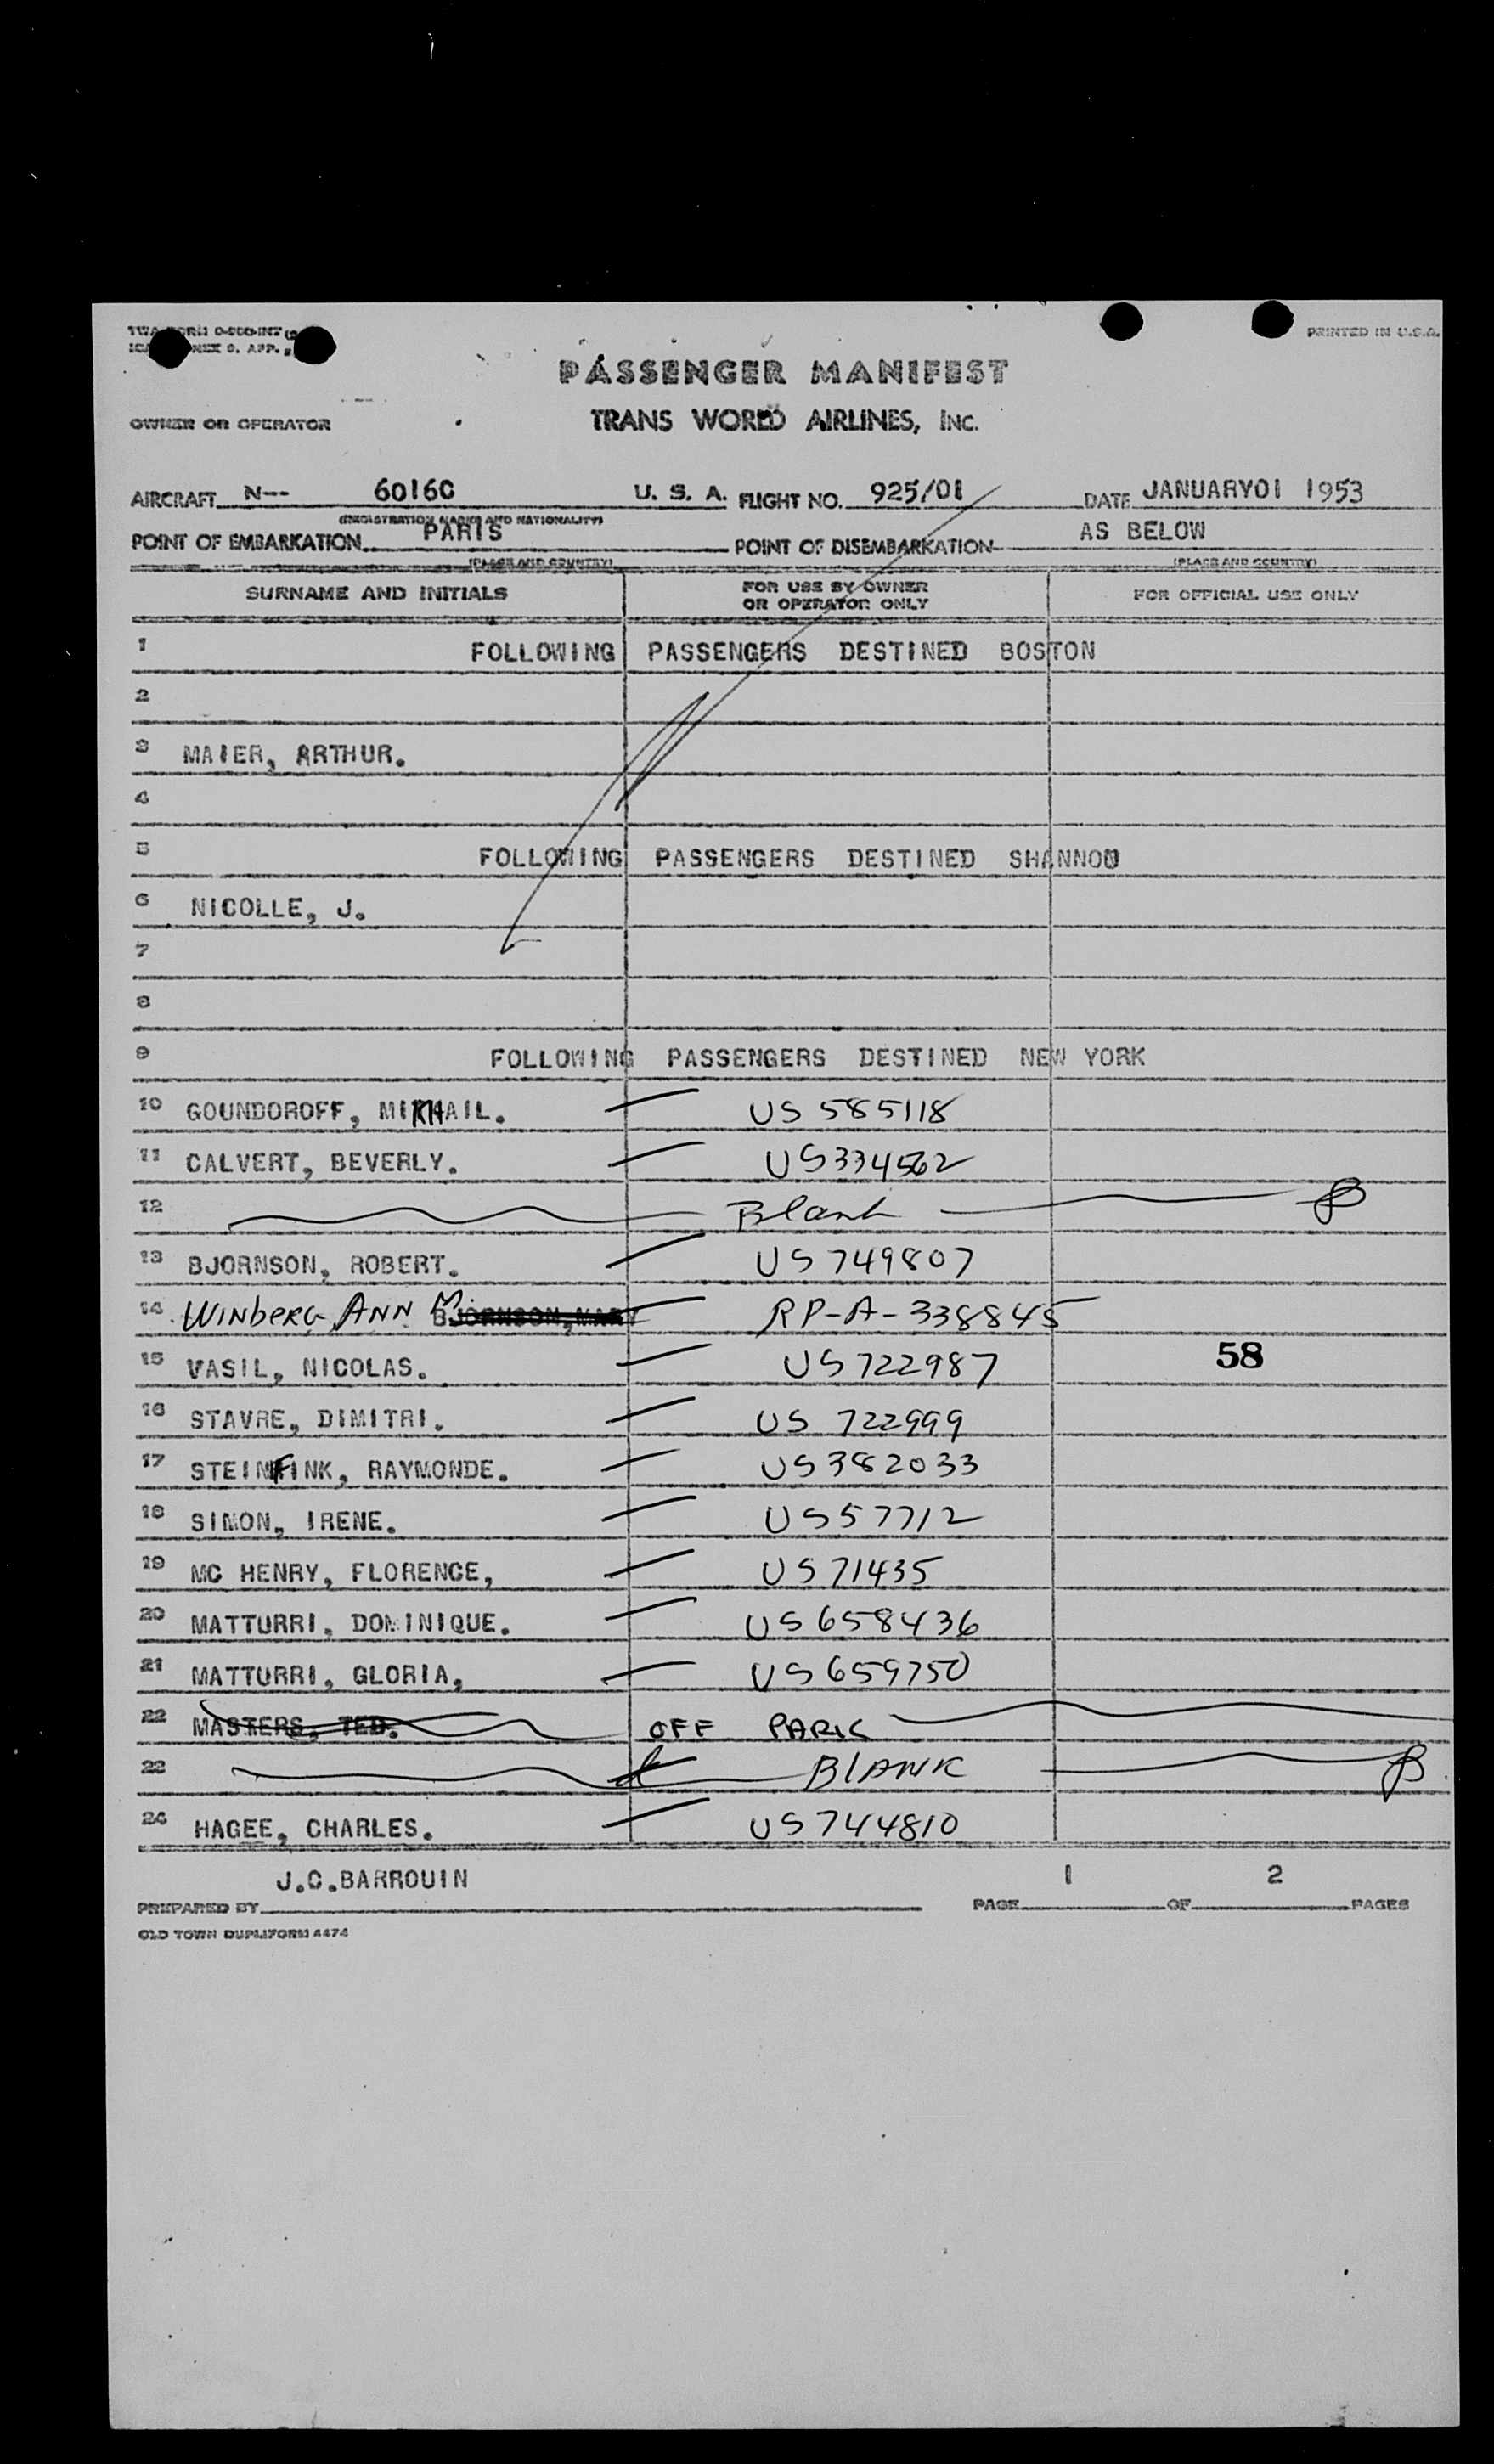 PRINTED IN U.S.A.
PASSENGER MANIFEST
OWNER OR OPERATOR TRANS WORLD AIRLINES, INC.
AIRCRAFT N-- 6016C U. S. A. FLIGHT NO. 925/01 DATE JANUARY01 1953
(REGISTRATION MARKS AND NATIONALITY)
POINT OF EMBARKATION PARIS POINT OF DISEMBARKATION AS BELOW
(PLACE AND COUNTRY) (PLACE AND COUNTRY)
SURNAME AND INITIALS FOR USE BY OWNER OR OPERATOR ONLY FOR OFFICIAL USE ONLY
1 FOLLOWING PASSENGERS DESTINED BOSTON
2
3 MAIER, ARTHUR.
4
5 FOLLOWING PASSENGERS DESTINED SHANNON
6 NICOLLE, J.
7
8
9 FOLLOWING PASSENGERS DESTINED NEW YORK
10 GOUNDOROFF, MIKHAIL. US 585118
11 CALVERT, BEVERLY. US334562
12 Blank
13 BJORNSON, ROBERT. US749807
14 WINBERG, ANN M. BJORNSON, MARY RP-A-338845
15 VASIL, NICOLAS. US722987 58
16 STAVRE, DIMITRI. US 722999
17 STEINFINK, RAYMONDE. US382033
18 SIMON, IRENE. US57712
19 MC HENRY, FLORENCE, US71435
20 MATTURRI, DOMINIQUE. US658436
21 MATTURRI, GLORIA, US659750
22 MASTERS, TED. OFF PARIS
23 BLANK
24 HAGEE, CHARLES. US744810
PREPARED BY J.C.BARROUIN PAGE 1 OF 2 PAGES
OLD TOWN DUPLIFORM 4474